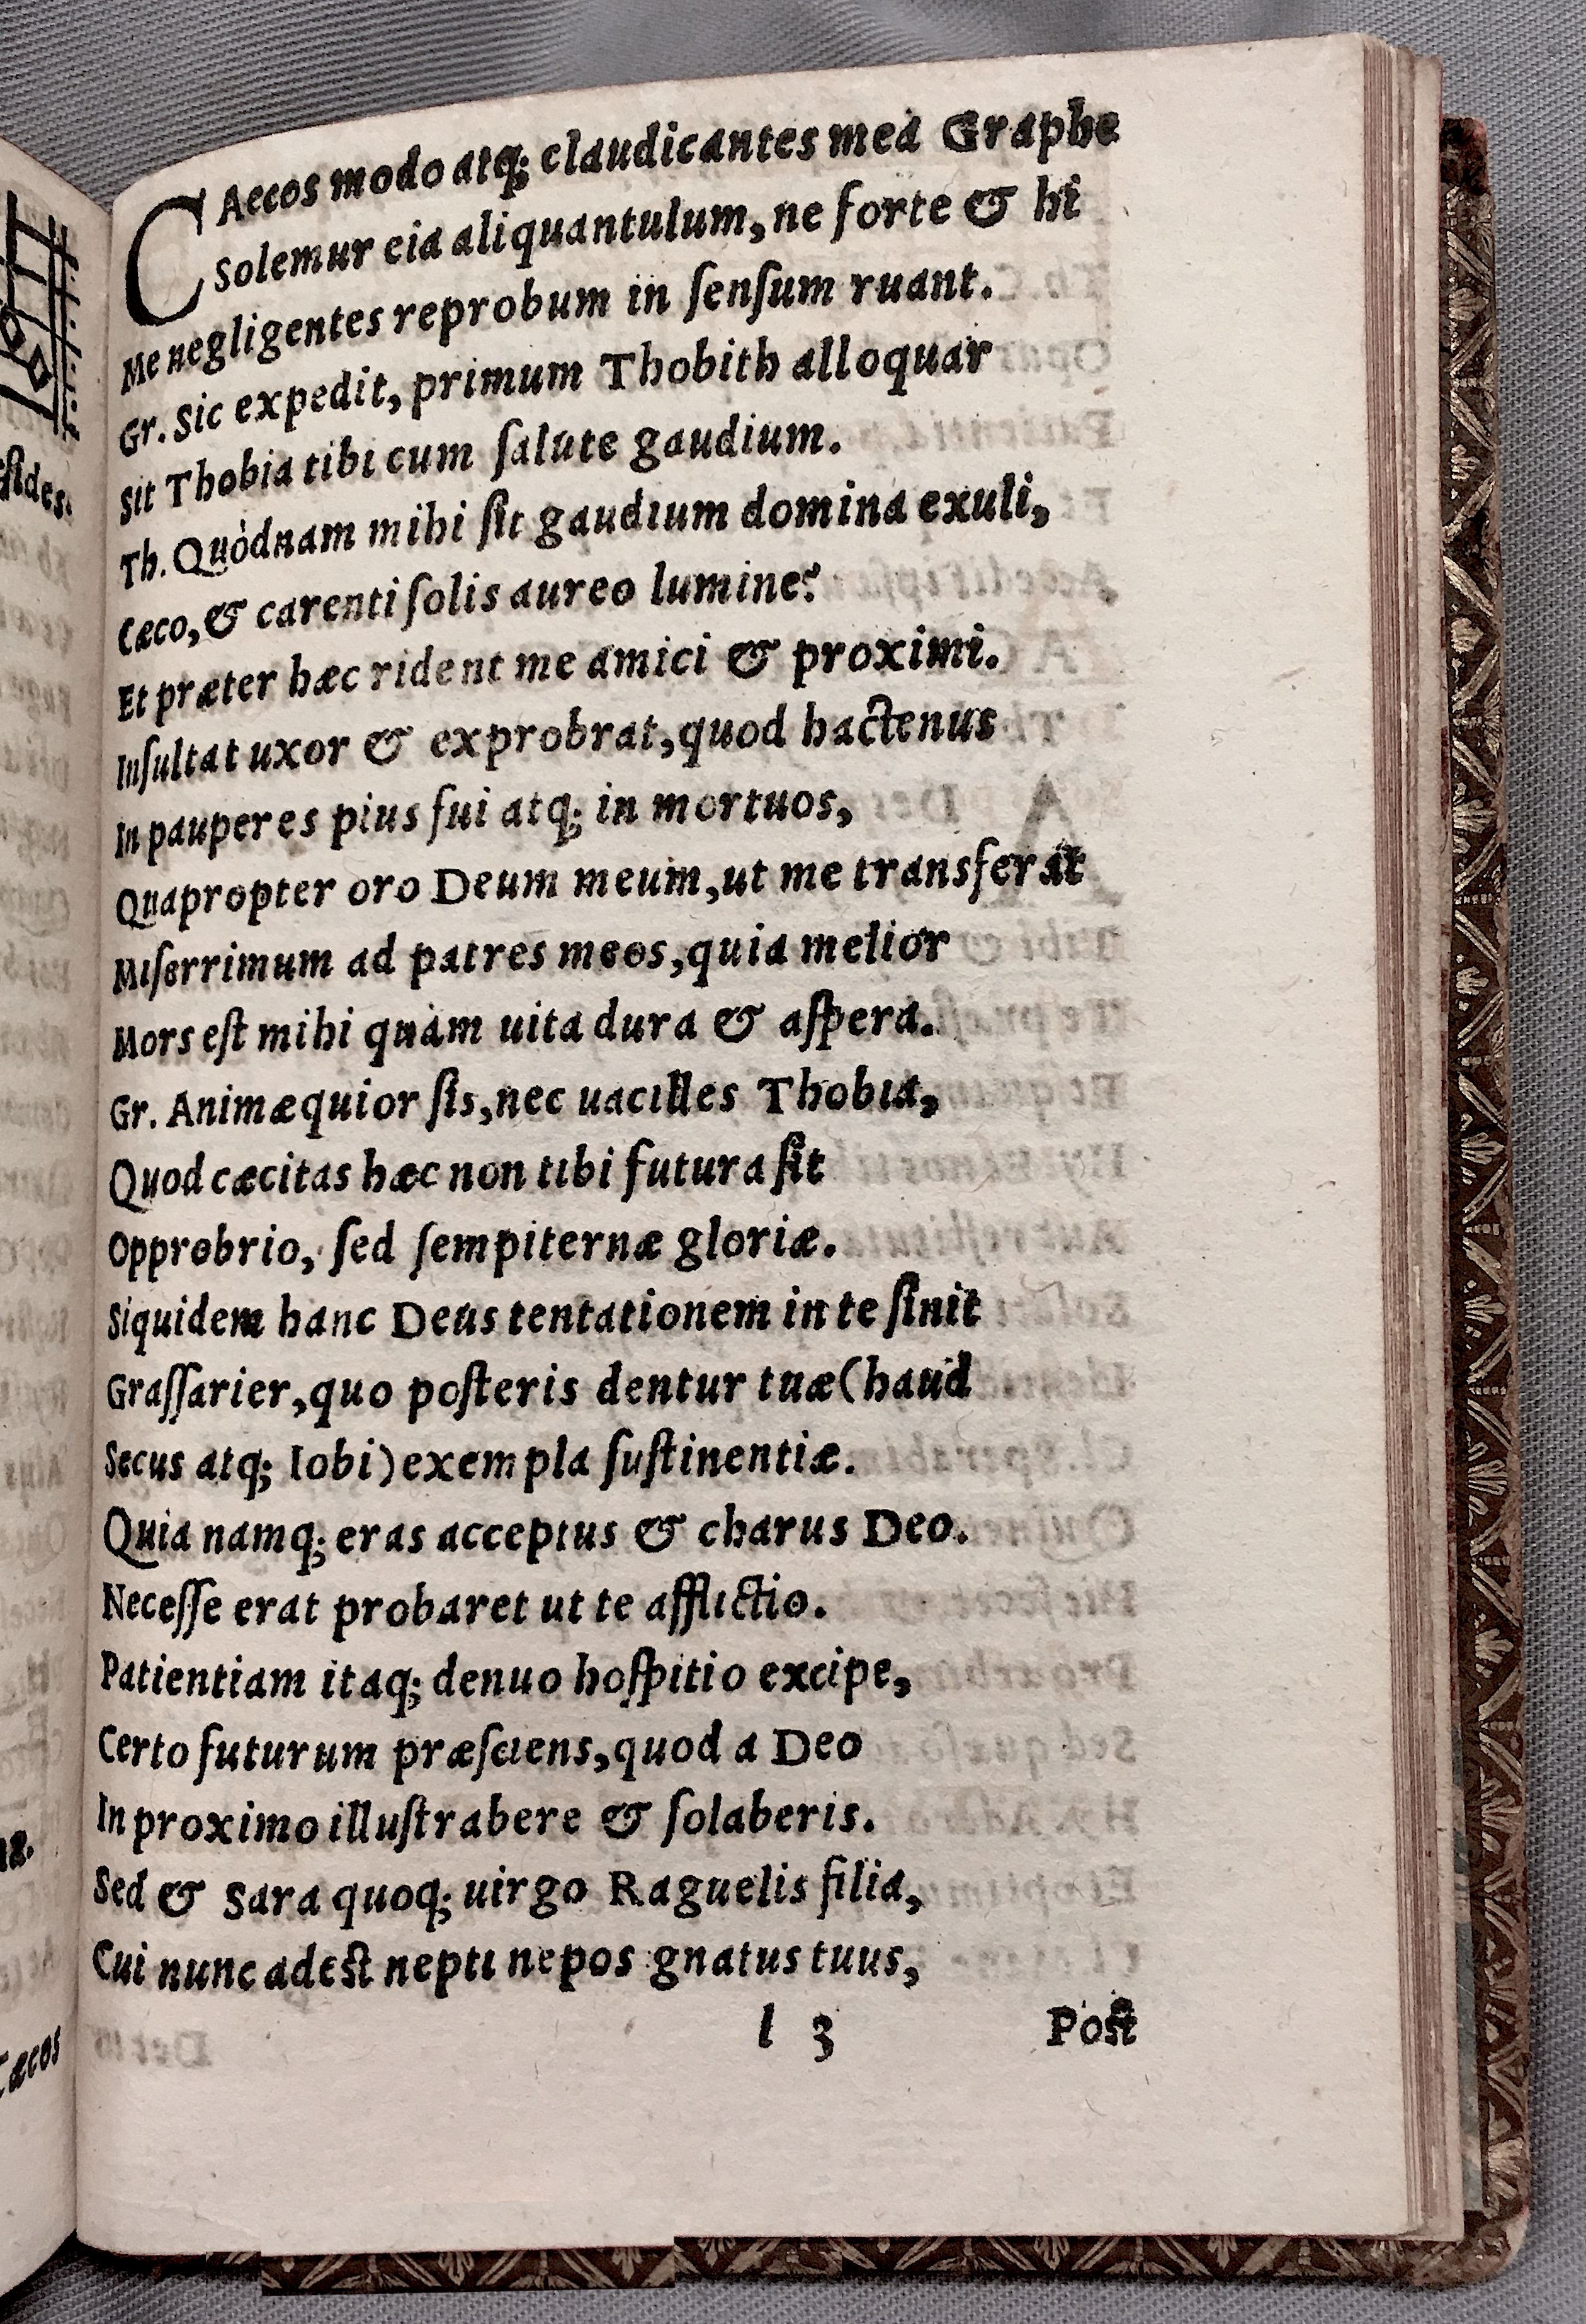 CAecos modo atq; claudicantes mea Graphe
Solemur eia aliquantulum, ne forte & hi
Me negligentes reprobum in ſenſum ruant.
Gr. Sic expedit, primum Thobith alloquar
Sit Thobia tibi cum ſalute gaudium.
Th. Quòdnam mihi ſit gaudium domina exuli,
Cæco, & carenti ſolis aureo lumine?
Et præter hæc rident me amici & proximi.
Inſultat uxor & exprobrat, quod hactenus
In pauperes pius fui atq; in mortuos,
Quapropter oro Deum meum, ut me transferat
Miſerrimum ad patres meos, quia melior
Mors eſt mihi quàm uita dura & aſpera.
Gr. Animæquior ſis, nec uacilles Thobia,
Quod cæcitas hæc non tibi futura ſit
Opprobrio, ſed ſempiternæ gloriæ.
Siquidem hanc Deus tentationem in te ſinit
Graſſarier, quo poſteris dentur tuæ (haud
Secus atq; Iobi) exempla ſuſtinentiæ.
Quia namq; eras acceptus & charus Deo.
Neceſſe erat probaret ut te afflictio.
Patientiam itaq; denuo hoſpitio excipe,
Certo futurum præſciens, quod a Deo
In proximo illuſtrabere & ſolaberis.
Sed & Sara quoq; uirgo Raguelis filia,
Cui nunc adeſt nepti nepos gnatus tuus,
l 3 Poſt
Cæcos